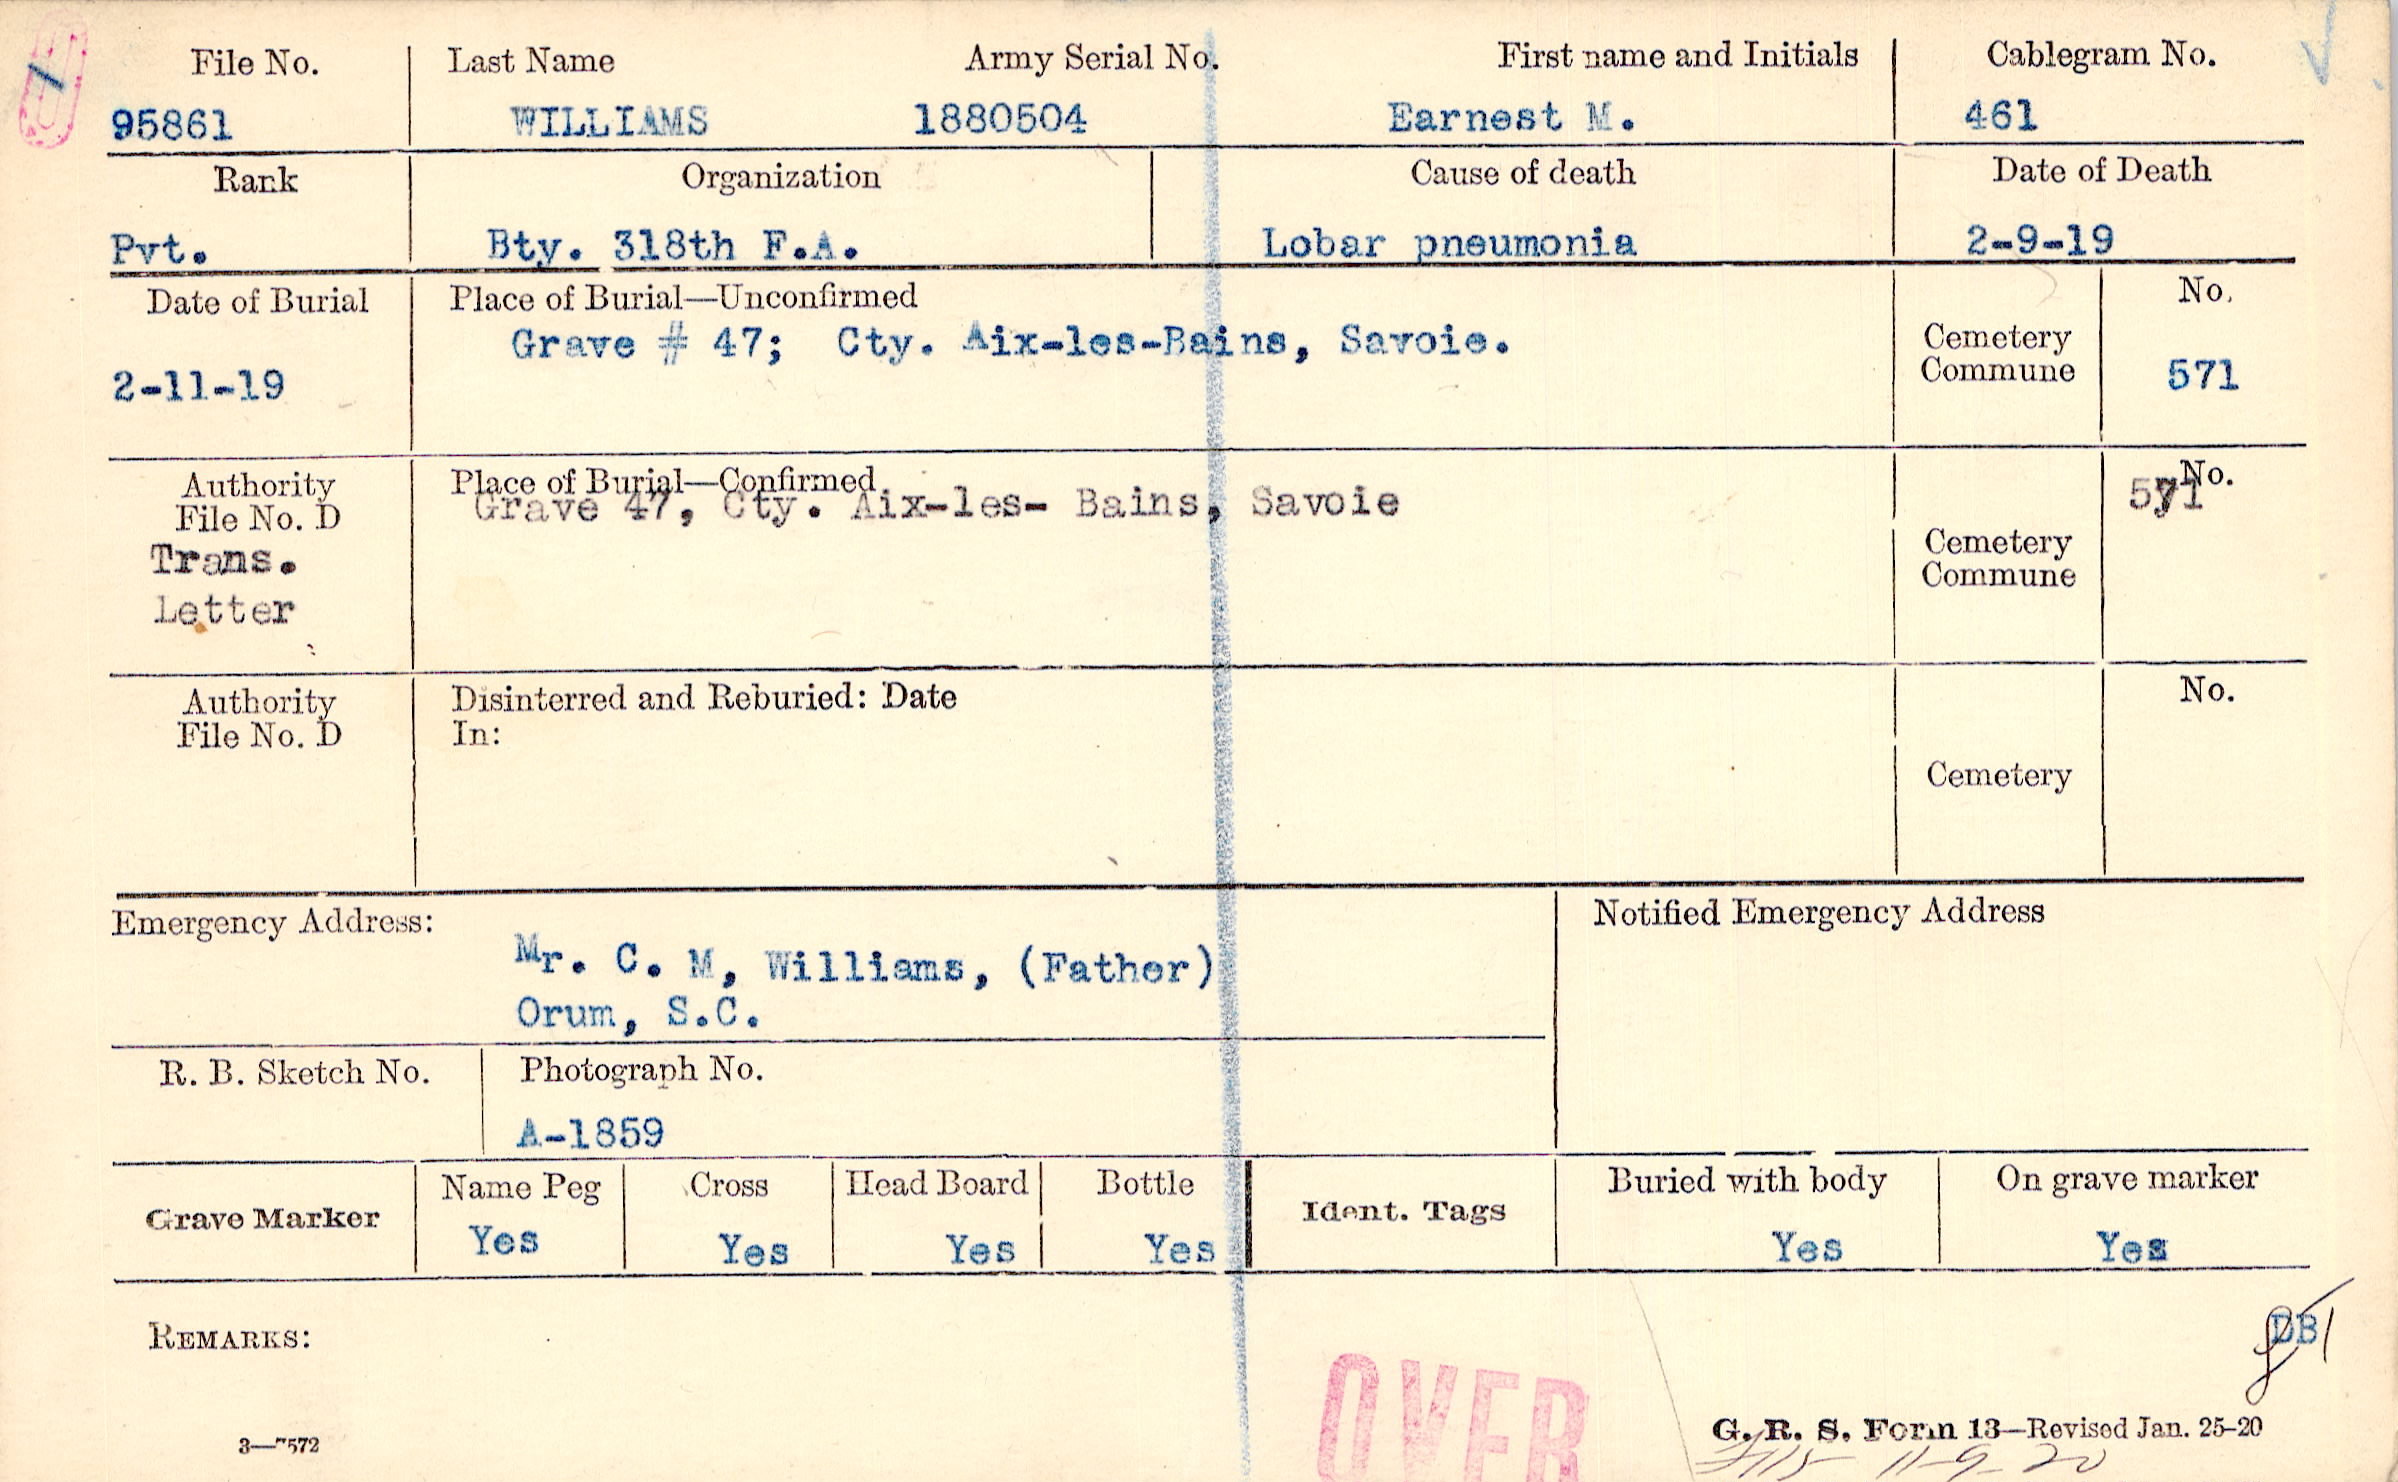 File No. Last Name Army Serial No. First name and Initials Cablegram No.
95861 WILLIAMS 1880504 Earnest M. 461
Rank Organization Cause of death Date of Death
Pvt. Bty. 318th F.A. Lobar pneumonia 2-9-19
Date of Burial Place of Burial—Unconfirmed No.
Grave # 47; Cty. Aix-les-Bains, Savoie. Cemetery
2-11-19 Commune 571
Authority Place of Burial—Confirmed No.
File No. D Grave 47, Cty. Aix-les- Bains, Savoie 571
Trans. Cemetery
Letter Commune
Authority Disinterred and Reburied: Date No.
File No. D In:
Cemetery
Emergency Address: Notified Emergency Address
Mr. C. M, Williams, (Father)
Orum, S.C.
R. B. Sketch No. Photograph No.
A-1859
Grave Marker Name Peg Cross Head Board Bottle Ident. Tags Buried with body On grave marker
Yes Yes Yes Yes Yes Yes
REMARKS:
DB
OVER
G. R. S. Form 13—Revised Jan. 25-20
11-9-20